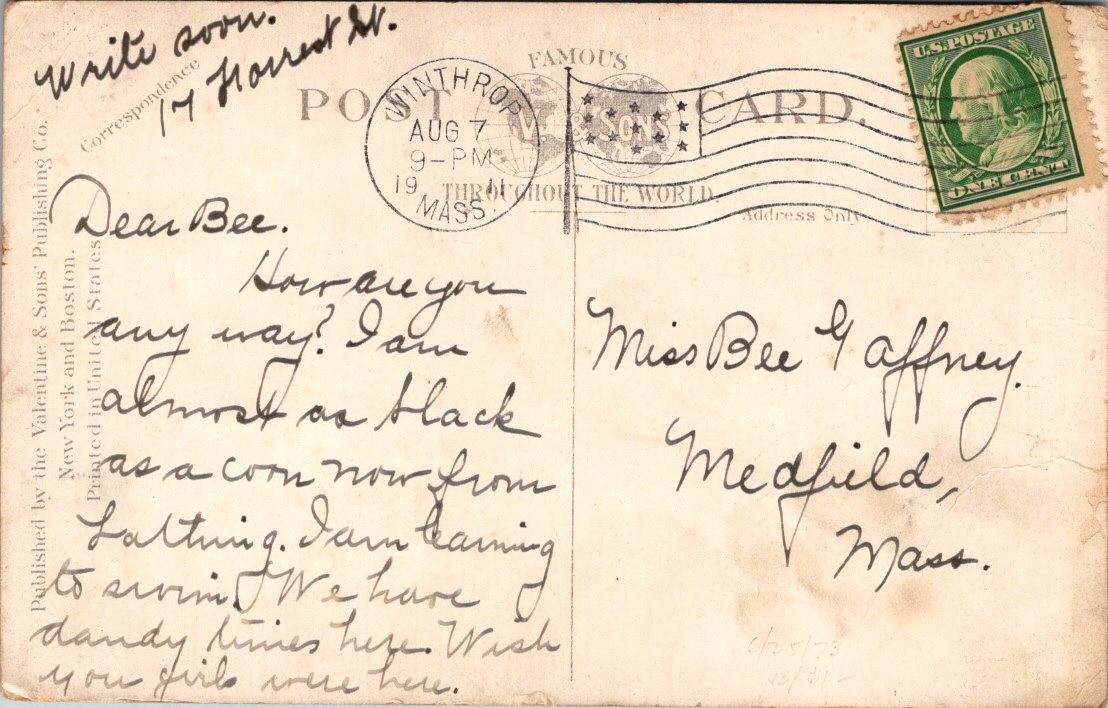 Write soon.
17 Forrest St.
Correspondence
FAMOUS
POST CARD.
SONS
THROUGHOUT THE WORLD.
Address Only
WINTHROP
AUG 7
9-PM
1911
MASS.
U.S. POSTAGE
ONE CENT
Published by the Valentine & Sons' Publishing Co.
New York and Boston.
Printed in United States.
Dear Bee.
How are you
any way? I am
almost as black
as a coon now from
bathing. I am learning
to swim. We have
dandy times here. Wish
you girls were here.
Miss Bee Gaffney.
Medfield,
Mass.